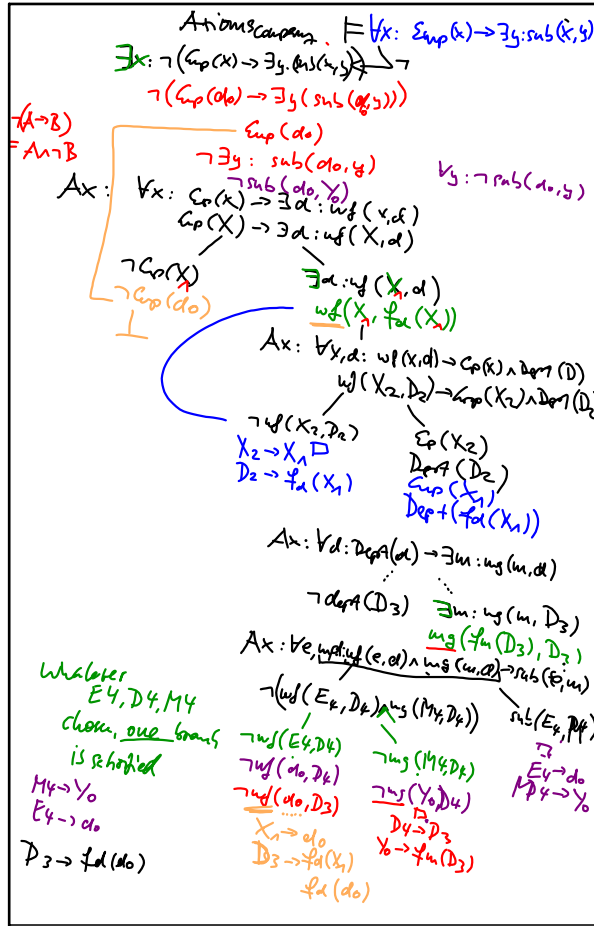 Axioms company. ⊨ ∀x: Emp(x) → ∃y: sub(x,y)
∃x: ¬(Emp(x) → ∃y.(sub(x,y)) ¬
¬(Emp(d0) → ∃y(sub(d0,y)))
¬(A→B)
= A∧¬B
Emp(d0)
¬∃y: sub(d0,y)
∀y: ¬sub(d0,y)
¬sub(d0,Y0)
Ax: ∀x: Ep(x) → ∃d: wf(x,d)
Emp(X) → ∃d: wf(X,d)
¬Emp(X1)
¬Emp(d0)
⊥
∃d: wf(X1,d)
wf(X1, fd(X1))
Ax: ∀x,d: wf(x,d) → Ep(x) ∧ Dept(D)
wf(X2,D2) → Emp(X2) ∧ Dept(D2
¬wf(X2,D2)
X2 → X1 □
D2 → fd(X1)
Ep(X2)
Dept(D2)
Emp(X1)
Dept(fd(X1))
Ax: ∀d: Dept(d) → ∃m: mg(m,d)
¬dept(D3)
∃m: mg(m,D3)
mg(fm(D3), D3)
Ax: ∀e,m,d: wf(e,d) ∧ mg(m,d) → sub(e,m)
¬(wf(E4,D4) ∧ mg(M4,D4))
sub(E4,M4)
□
E4 → d0
MD4 → Y0
whatever
E4, D4, M4
chosen, one branch
is satisfied
M4 → Y0
E4 → d0
D3 → fd(d0)
¬wf(E4,D4)
¬wf(d0,D4)
¬wf(d0,D3)
X1 → d0
D3 → fd(X1)
fd(d0)
¬mg(M4,D4)
¬mg(Y0,D4)
□
D4 → D3
Y0 → fm(D3)